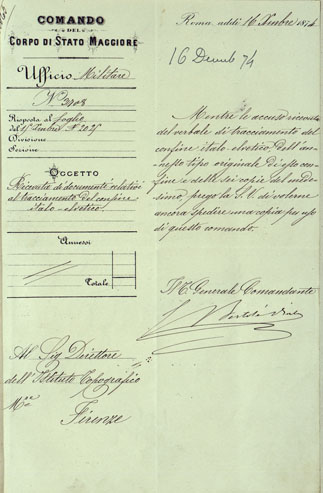 COMANDO
DEL
CORPO DI STATO MAGGIORE
Ufficio Militare
N.º 3908
Risposta al foglio
del 15 Xembre Nº 2025
Divisione
Sezione
OGGETTO
Ricevuta di documenti relativi
al tracciamento del confine
italo-elvetico
Annessi
Totale
Al Sig Direttore
dell'Istituto Topografico
Mre
Firenze
Roma, addì 16 Xembre 1874
16 Decemb 74
Mentre le accuso ricevuta
del verbale di tracciamento del
confine italo elvetico. Dell'an-
nesso tipo originale di esso con-
fine e delle sei copie del mede-
simo, prego la S.V. di volerne
ancora spedire una copia per uso
di questo comando.
Il T. Generale Comandante